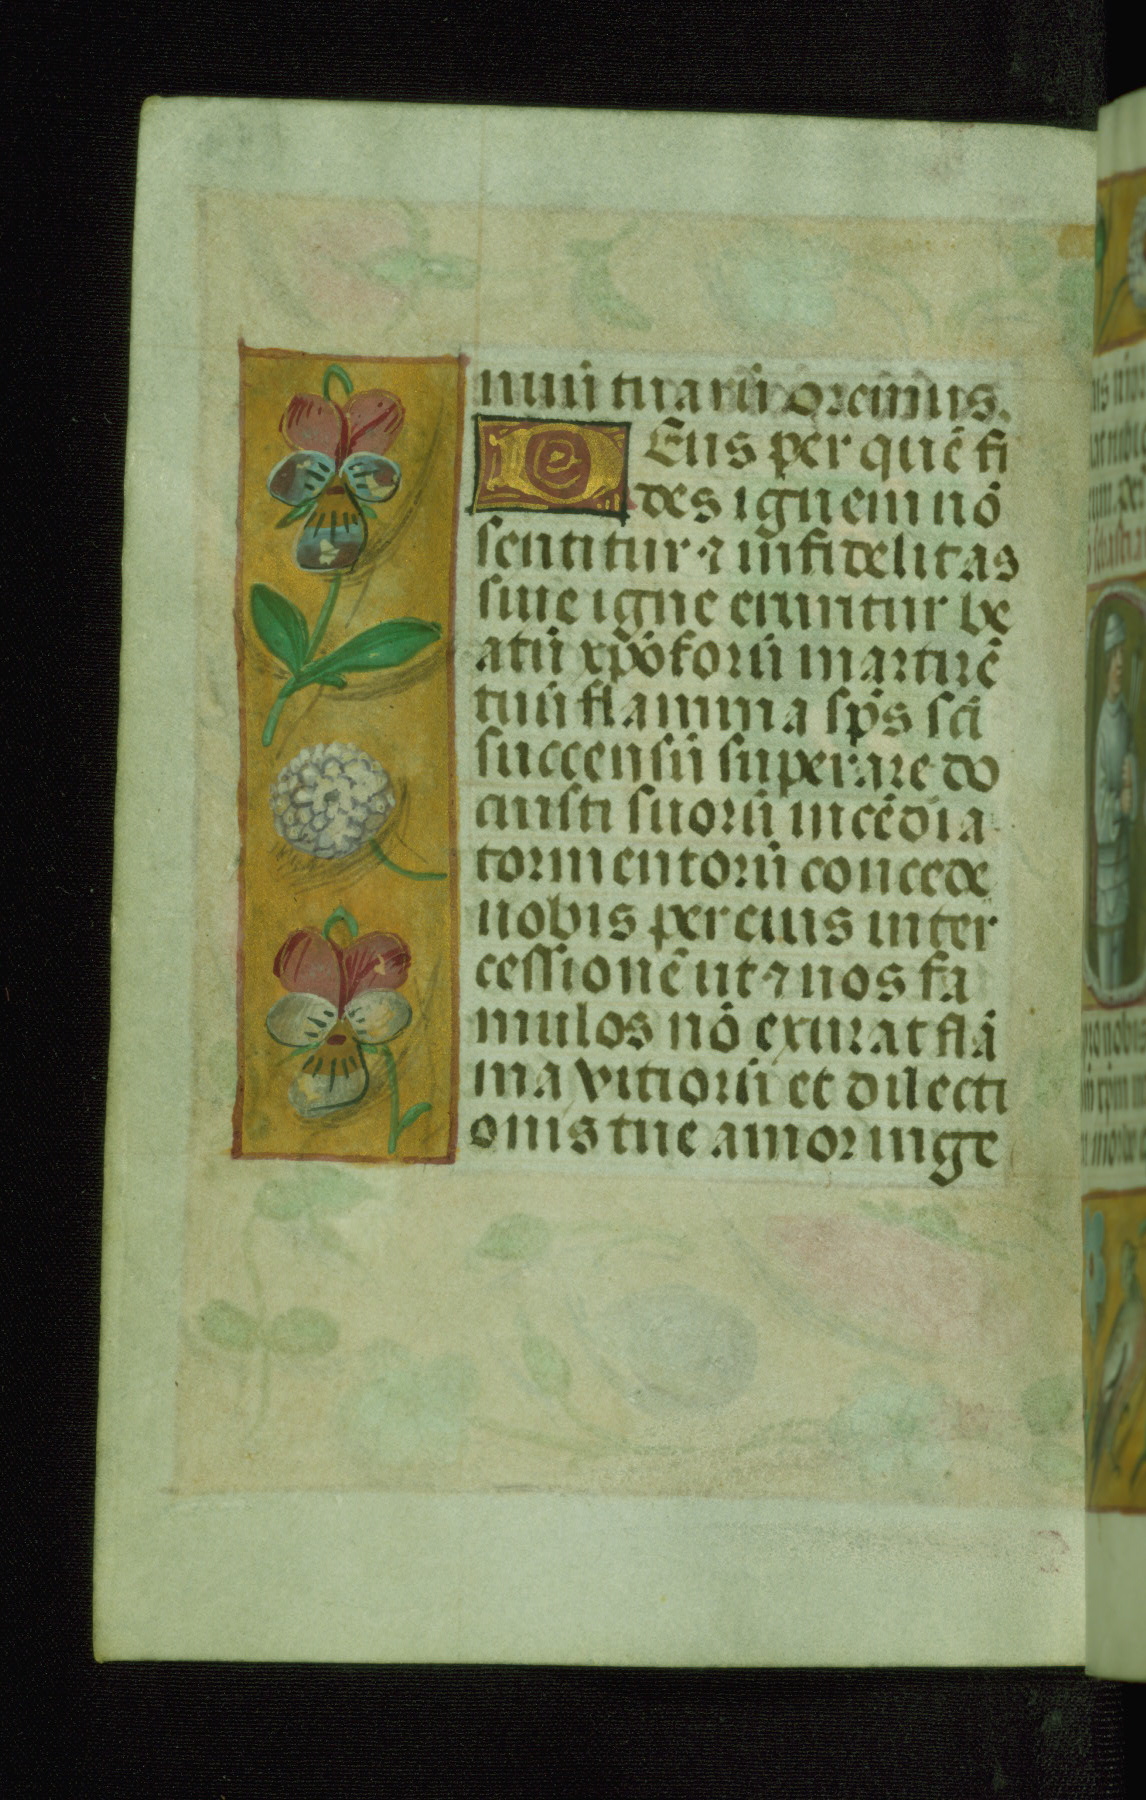 nuū tuarū oremus.
Eus per quē fi
des ignem nō
sentitur ⁊ infidelitas
sine igne eruntur be
atū xp̄oforū martirē
tuū flamma sp̄s sc̄i
succensū superare do
cuisti suorū incēdia
tormentorū concede
nobis per eius inter
cessionē ut ⁊ nos fa
mulos nō exurat flā
ma vitiorū et dilecti
onis tue amor inge